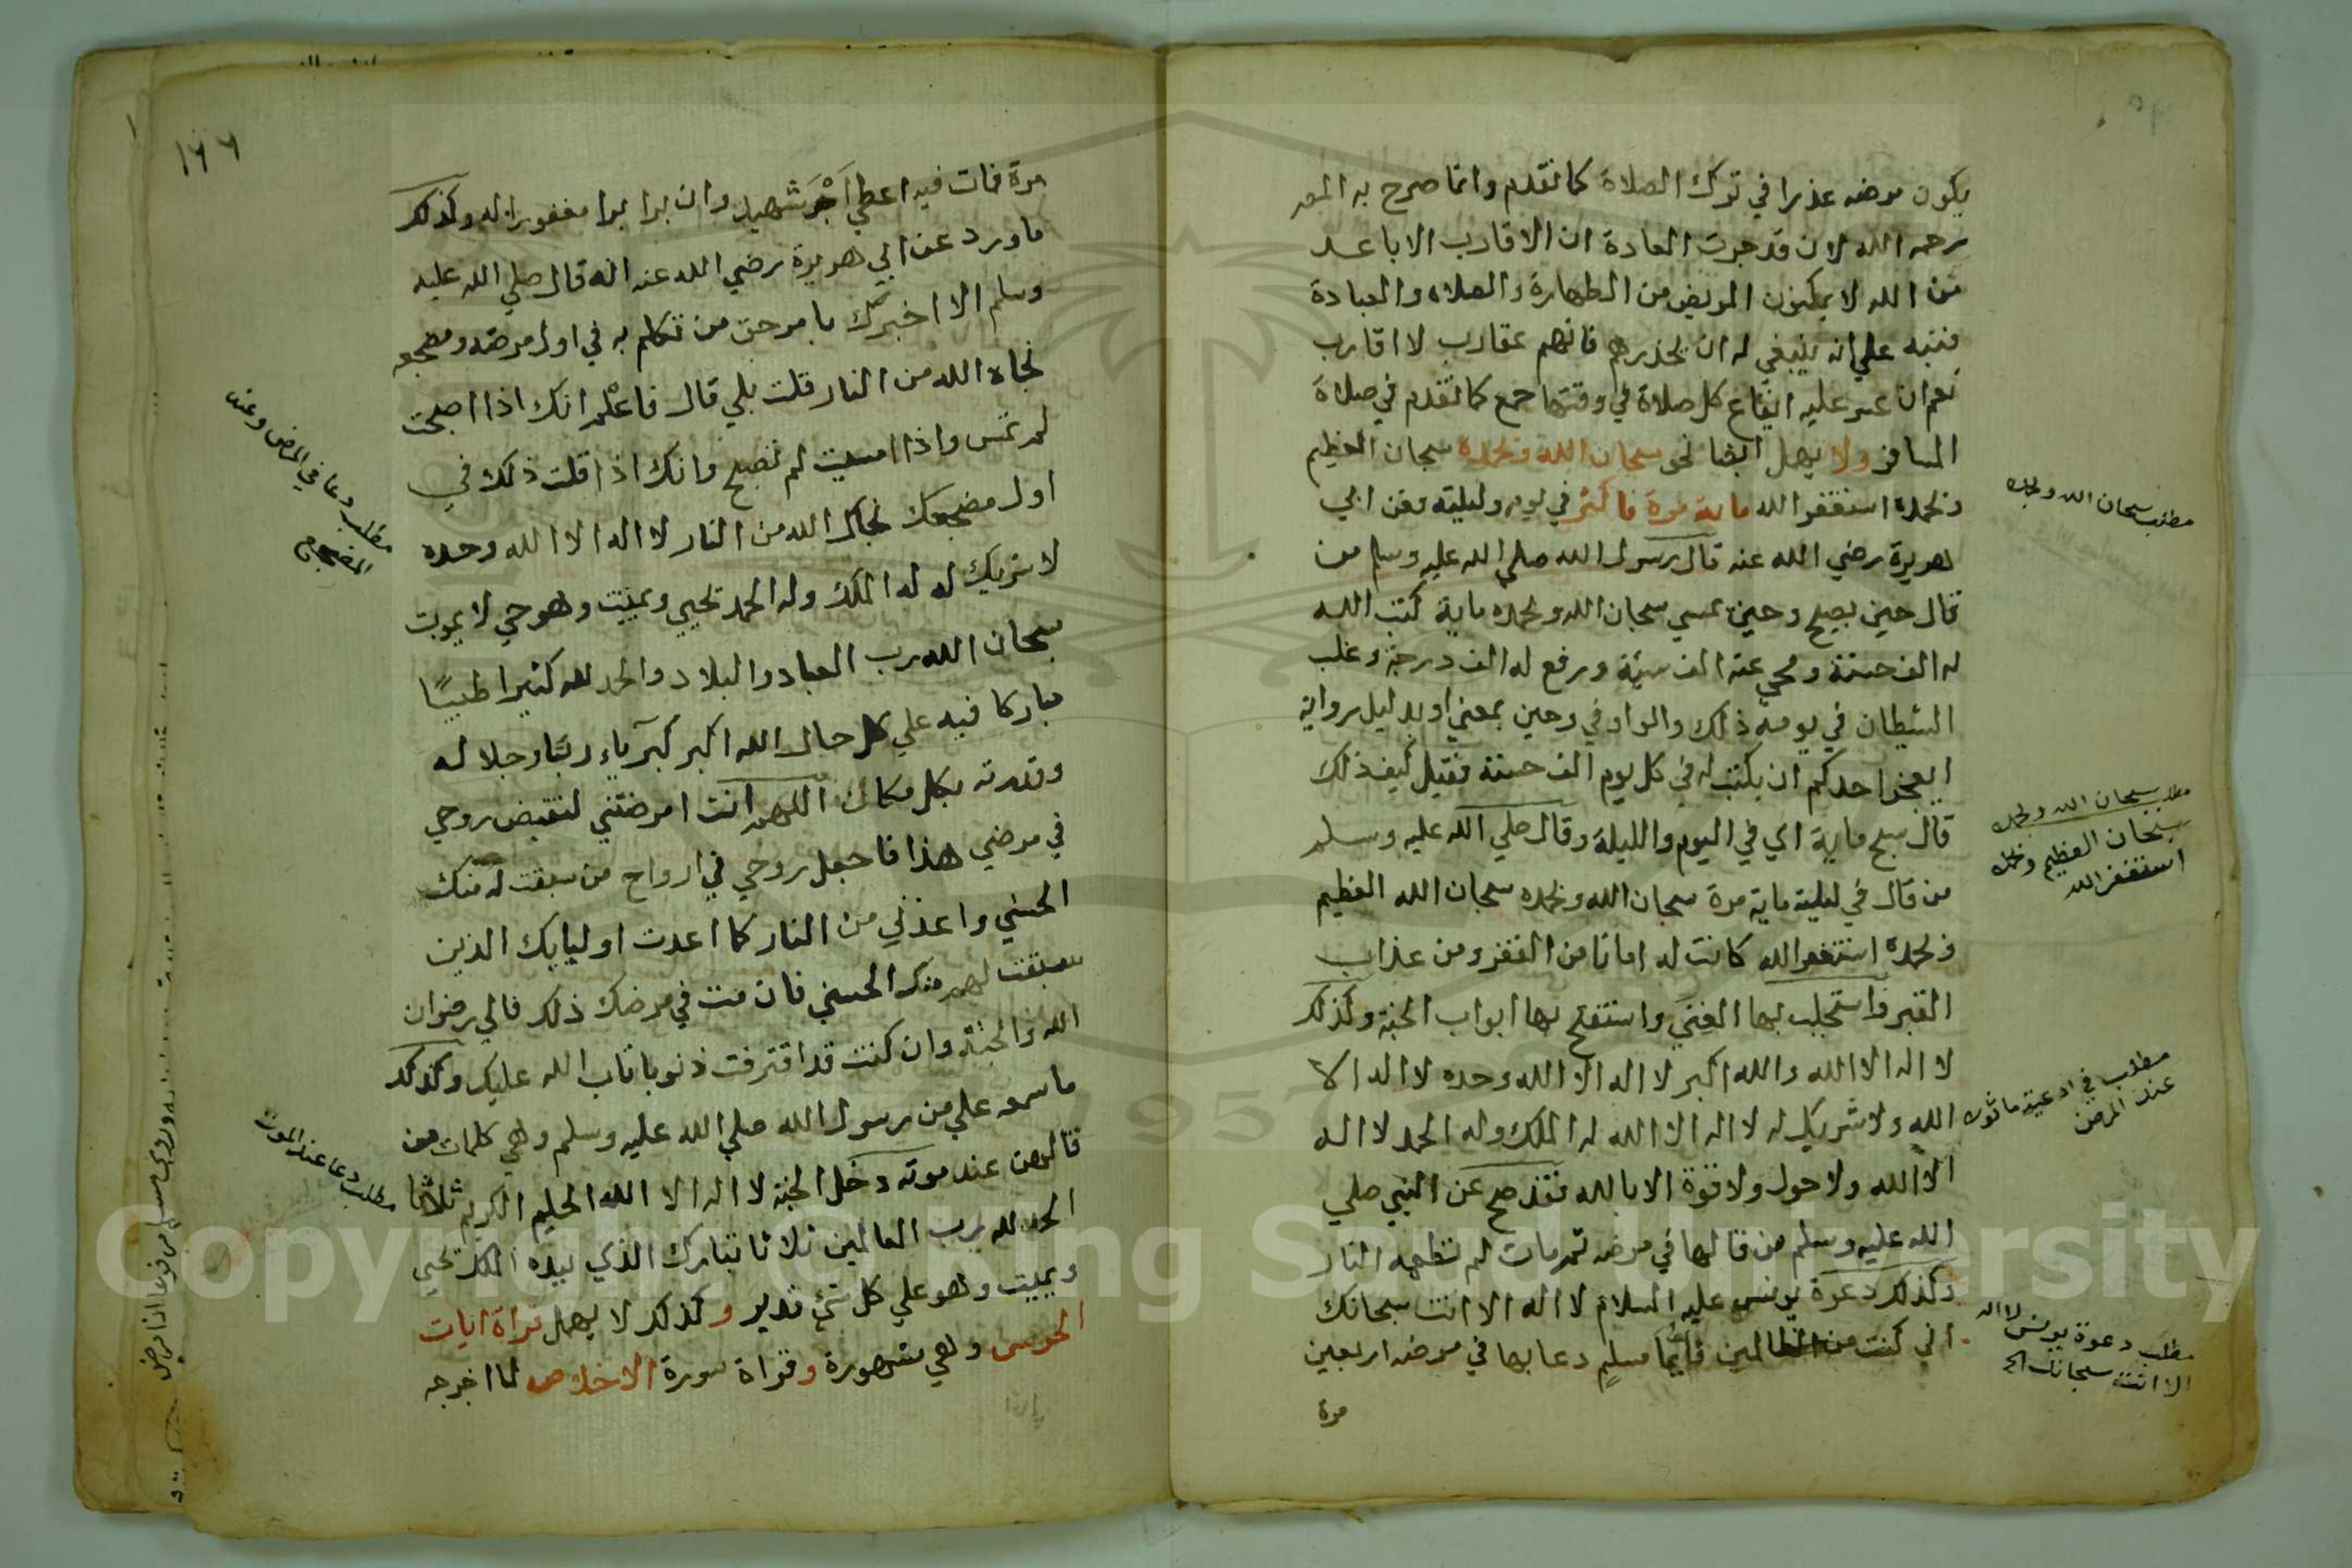 يكون مرضه عذرا في ترك الصلاة كما تقدم وانما صرح به المص
رحمه الله لان قد جرت العادة ان الاقارب الاباعد
من الله لا يمكنون المريض من الطهارة والصلاه والعبادة
فنبه علي انه ينبغي له ان يحذرهم فانهم عقارب لا اقارب
نعم ان عسر عليه ايقاع كل صلاة في وقتها جمع كما تقدم في صلاة
المسافر ولا يهمل ايضا نحو سبحان الله وبحمده سبحان العظيم
وبحمده استغفر الله ماية مرة فاكثر في يومه وليلته فعن ابي
هريرة رضي الله عنه قال رسول الله صلي الله عليه وسلم من
قال حين يصبح وحين يمسي سبحان الله وبحمده ماية كتب الله
له الف حسنة ومحي عنه الف سيئة ورفع له الف درجة وغلب
الشيطان في يومه ذلك والواو في وحين بمعني او بدليل رواية
ايعجز احدكم ان يكتب له في كل يوم الف حسنة فقيل كيف ذلك
قال سبح ماية اي في اليوم والليلة وقال صلي الله عليه وسلم
من قال في ليلته ماية مرة سبحان الله وبحمده سبحان الله العظيم
وبحمده استغفر الله كانت له امانا من الفقر ومن عذاب
القبر واستجلب بها الغني واستفتح بها ابواب الجنة وكذلك
لا اله الا الله والله اكبر لا اله الا الله وحده لا اله الا
الله ولا شريك له لا اله الا الله له الملك وله الحمد لا اله
الا الله ولا حول ولا قوة الا بالله فقد صح عن النبي صلي
الله عليه وسلم من قالها في مرضه ثم مات لم تطعمه النار
وكذلك دعوة يونس عليه السلام لا اله الا انت سبحانك
اني كنت من الظالمين فايما مسلم دعا بها في مرضه اربعين
مرة
مطلب سبحان الله وبحمده
مطلب سبحان الله وبحمده
سبحان العظيم وبحمده
استغفر الله
مطلب في ادعية ماثوره
عند المرض
مطلب دعوة يونس لا اله
الا انت سبحانك الخ
١٩٦
مرة فمات فيه اعطي اجر شهيد وان برا برا مغفورا له وكذلك
ما ورد عن ابي هريرة رضي الله عنه انه قال صلي الله عليه
وسلم الا اخبرك بامر حق من تكلم به في اول مرضه ومضجعه
نجاه الله من النار قلت بلي قال فاعلم انك اذا اصبحت
لم تمس واذا امسيت لم تصبح وانك اذا قلت ذلك في
اول مضجعك نجاك الله من النار لا اله الا الله وحده
لا شريك له له الملك وله الحمد يحيي ويميت وهو حي لا يموت
سبحان الله رب العباد والبلاد والحمد لله كثيرا طيبًا
مباركا فيه علي كل حال الله اكبر كبرياء ربنا وجلاله
وقدرته بكل مكان اللهم انت امرضتني لتقبض روحي
في مرضي هذا فاجعل روحي في ارواح من سبقت له منك
الحسني واعذني من النار كما اعدت اوليايك الذين
سبقت لهم منك الحسني فان مت في مرضك ذلك فالي رضوان
الله والجنة وان كنت قد اقترفت ذنوبا تاب الله عليك وكذلك
ما سمعه علي من رسول الله صلي الله عليه وسلم وهي كلمات من
قالهن عند موته دخل الجنة لا اله الا الله الحليم الكريم ثلاثا
الحمد لله رب العالمين ثلاثا تبارك الذي بيده الملك يحيي
ويميت وهو علي كل شئ قدير وكذلك لا يهمل قراة ايات
الحرس وهي مشهورة وقراة سورة الاخلاص لما اخرجه
مطلب دعا في المرض وعند
المضجع
مطلب دعا عند الموت
Copyright © King Saud University
1957